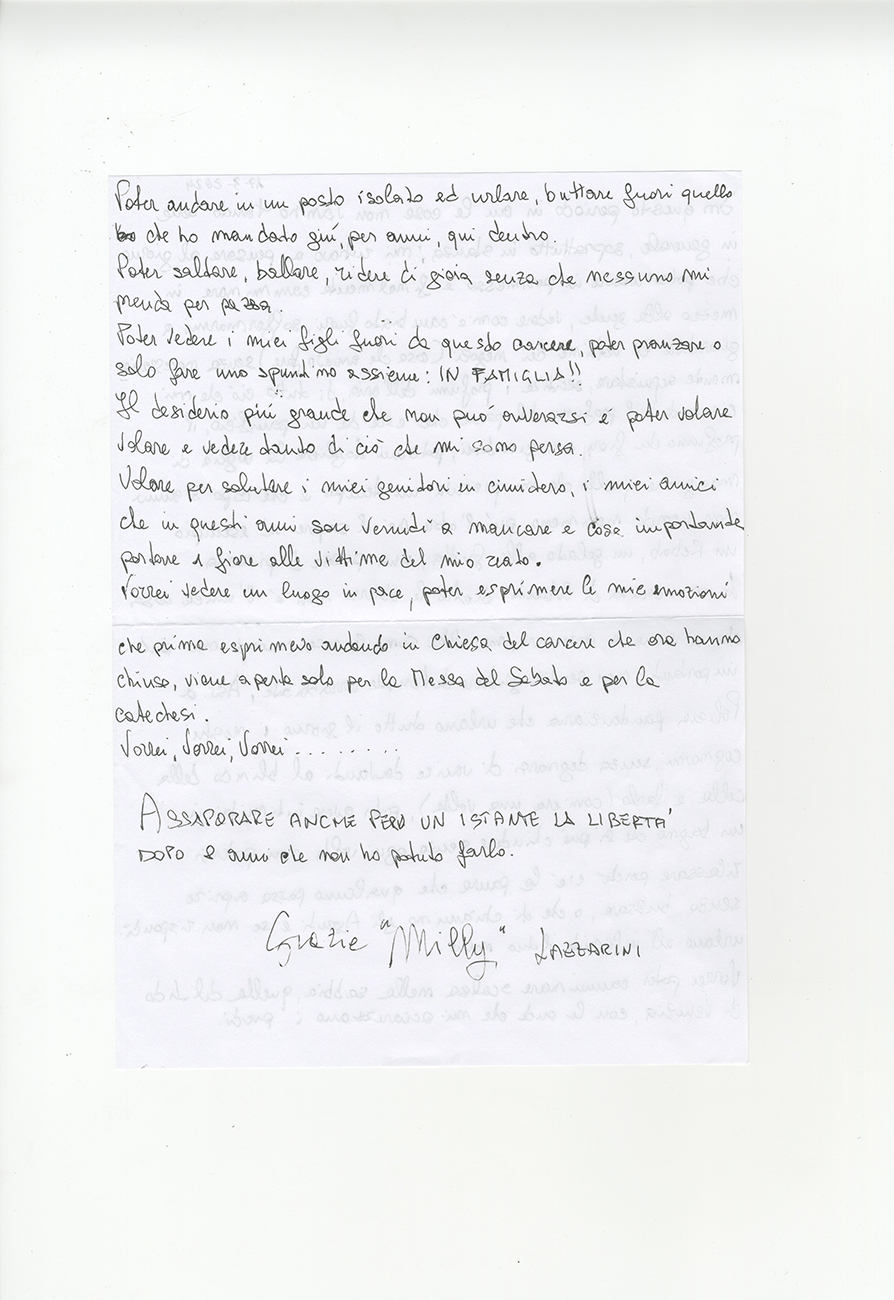 Poter andare in un posto isolato ed urlare, buttare fuori quello
che ho mandato giú, per anni, qui dentro.
Poter saltare, ballare, ridere di gioia senza che nessuno mi
prenda per pazza.
Poter vedere i miei figli fuori da questo carcere, poter pranzare o
solo fare uno spuntino assieme: IN FAMIGLIA!!
Il desiderio piú grande che non può avverarsi é poter volare
volare e vedere tanto di ciò che mi sono persa.
Volare per salutare i miei genitori in cimitero, i miei amici
che in questi anni son venuti a mancare e cosa importante
portare 1 fiore alle vittime del mio reato.
Vorrei vedere un luogo in pace, poter esprimere le mie emozioni
che prima esprimevo andando in Chiesa del carcere che ora hanno
chiuso, viene aperta solo per la Messa del Sabato e per la
catechesi.
Vorrei, Vorrei, Vorrei........
ASSAPORARE ANCHE PER UN ISTANTE LA LIBERTA'
DOPO anni che non ho potuto farlo.
Grazie "Milly" LAZZARINI